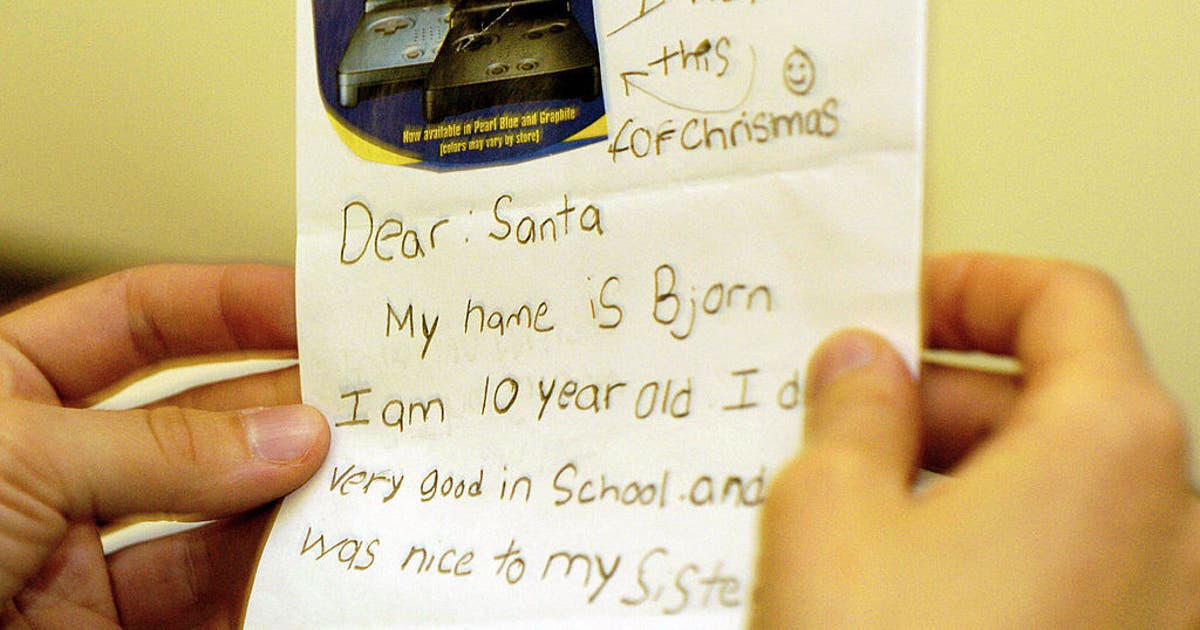 this
for Chrismas
Now available in Pearl Blue and Graphite
(colors may vary by store)
Dear: Santa
My name is Bjorn
I am 10 year old I d
very good in School. and
was nice to my Siste